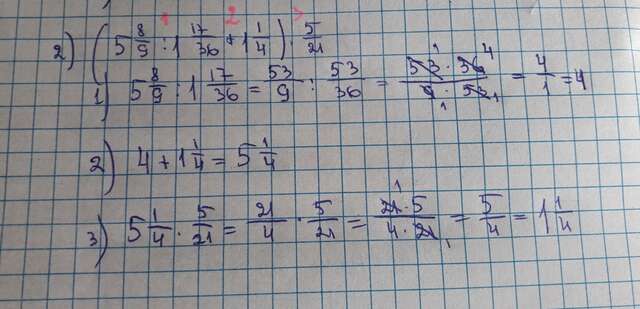 1 2 3
2) (5 8/9 : 1 17/36 + 1 1/4) · 5/21
1) 5 8/9 : 1 17/36 = 53/9 : 53/36 = 53 · 36/9 · 53 = 4/1 = 4
2) 4 + 1 1/4 = 5 1/4
3) 5 1/4 · 5/21 = 21/4 · 5/21 = 21 · 5/4 · 21 = 5/4 = 1 1/4